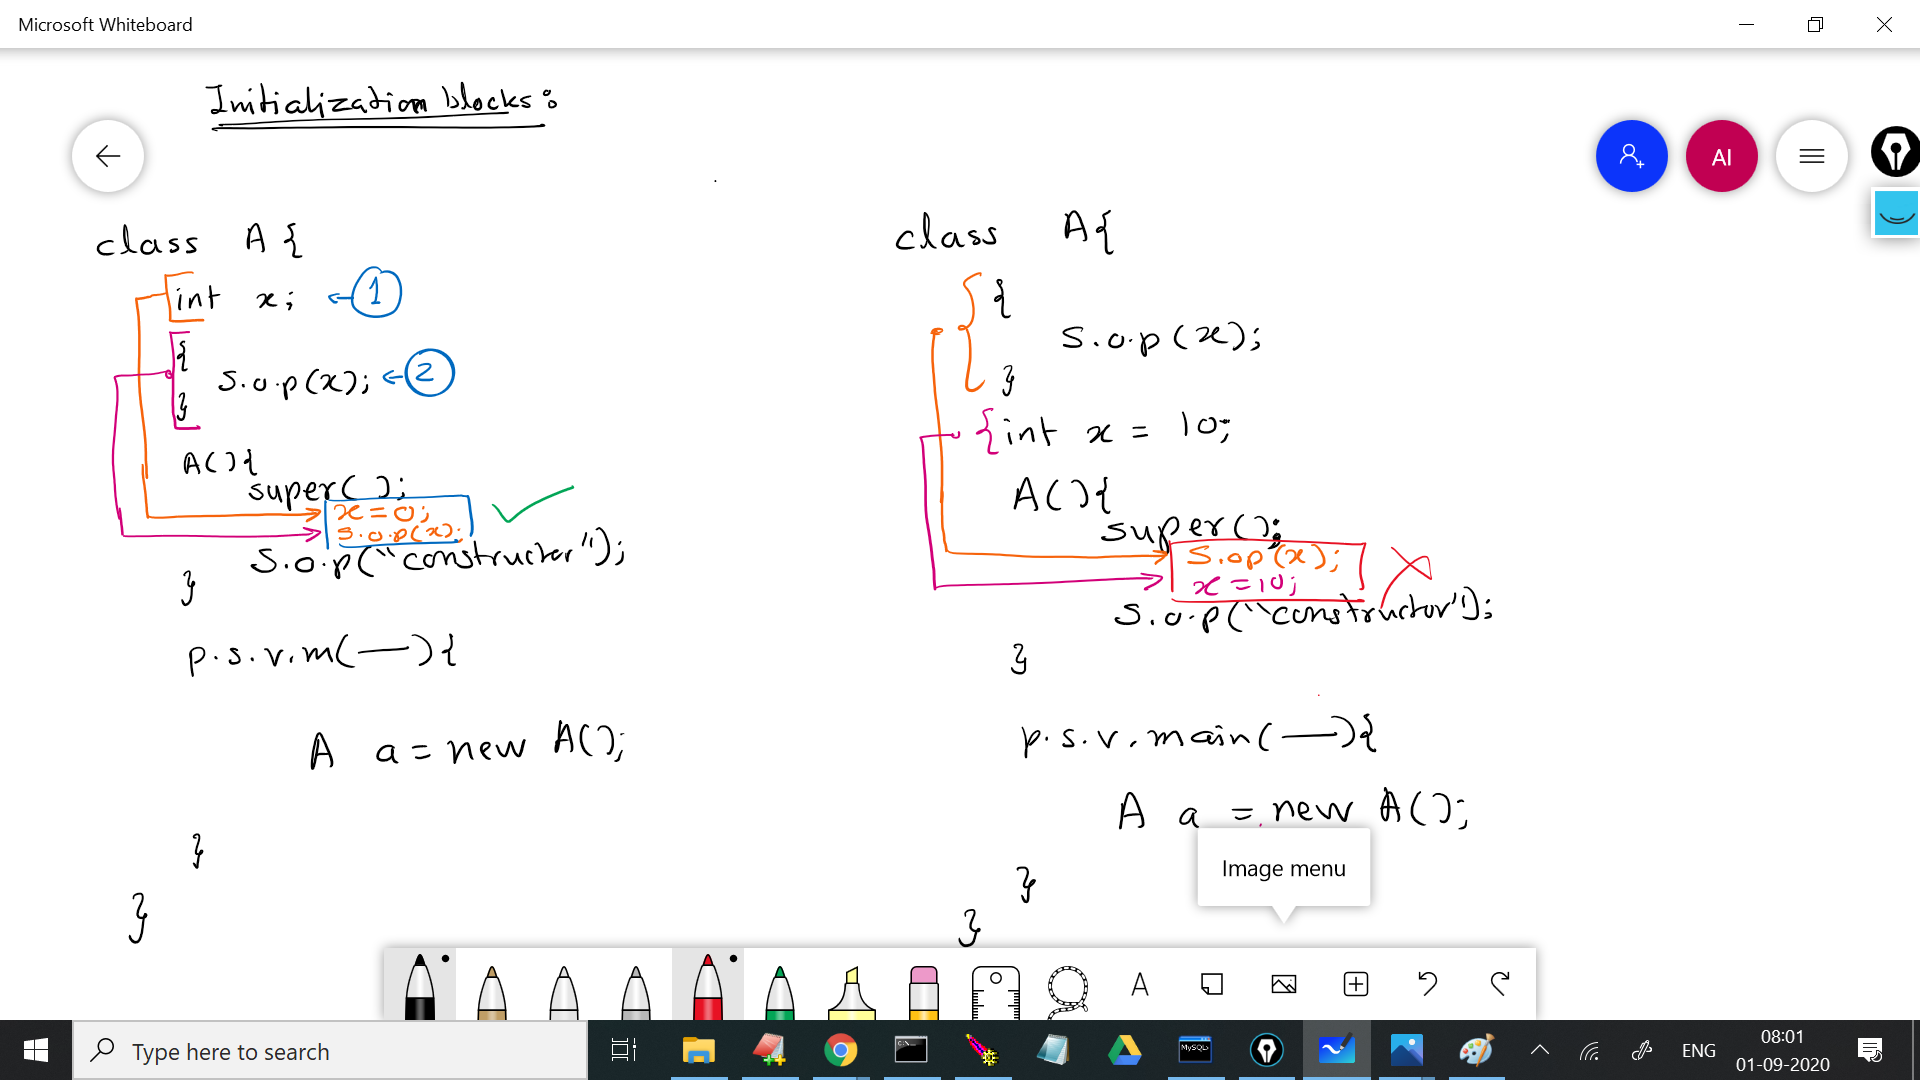 Microsoft Whiteboard
Initialization blocks:
AI
class A {
int x; ← 1
{
S.o.p(x); ← 2
}
A(){
super();
x=0;
S.o.p(x);
S.o.p("constructor");
}
p.s.v.m(—){
A a = new A();
}
}
class A{
{
S.o.p(x);
}
{int x = 10;
A(){
super();
S.op(x);
x=10;
S.o.p("constructor");
}
p.s.v.main(—){
A a = new A();
}
}
Image menu
A
Type here to search
C:\
MySQL
ENG
08:01
01-09-2020